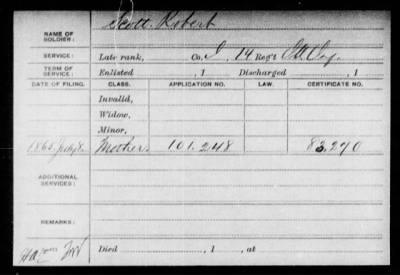 NAME OF SOLDIER: Scott, Robert
SERVICE: Late rank, Co. I, 14 Reg't
TERM OF SERVICE: Enlisted , 1 Discharged , 1
DATE OF FILING. CLASS. APPLICATION NO. LAW. CERTIFICATE NO.
Invalid,
Widow,
Minor,
1865, July 8. Mother 101,248 83,270
ADDITIONAL SERVICES:
REMARKS:
Died , 1 , at